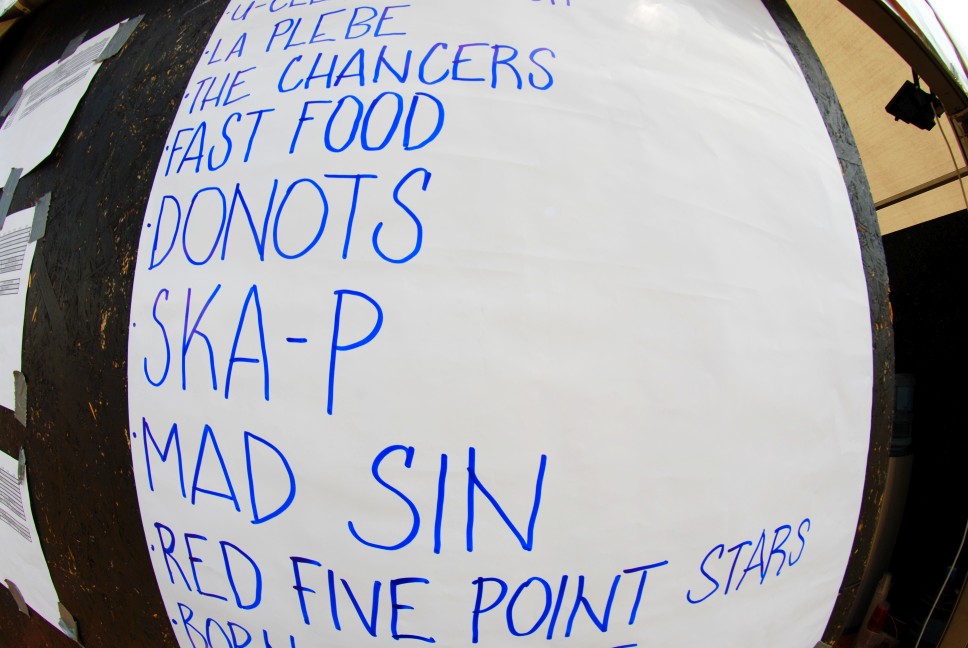 ·LA PLEBE
·THE CHANCERS
·FAST FOOD
·DONOTS
·SKA-P
·MAD SIN
·RED FIVE POINT STARS